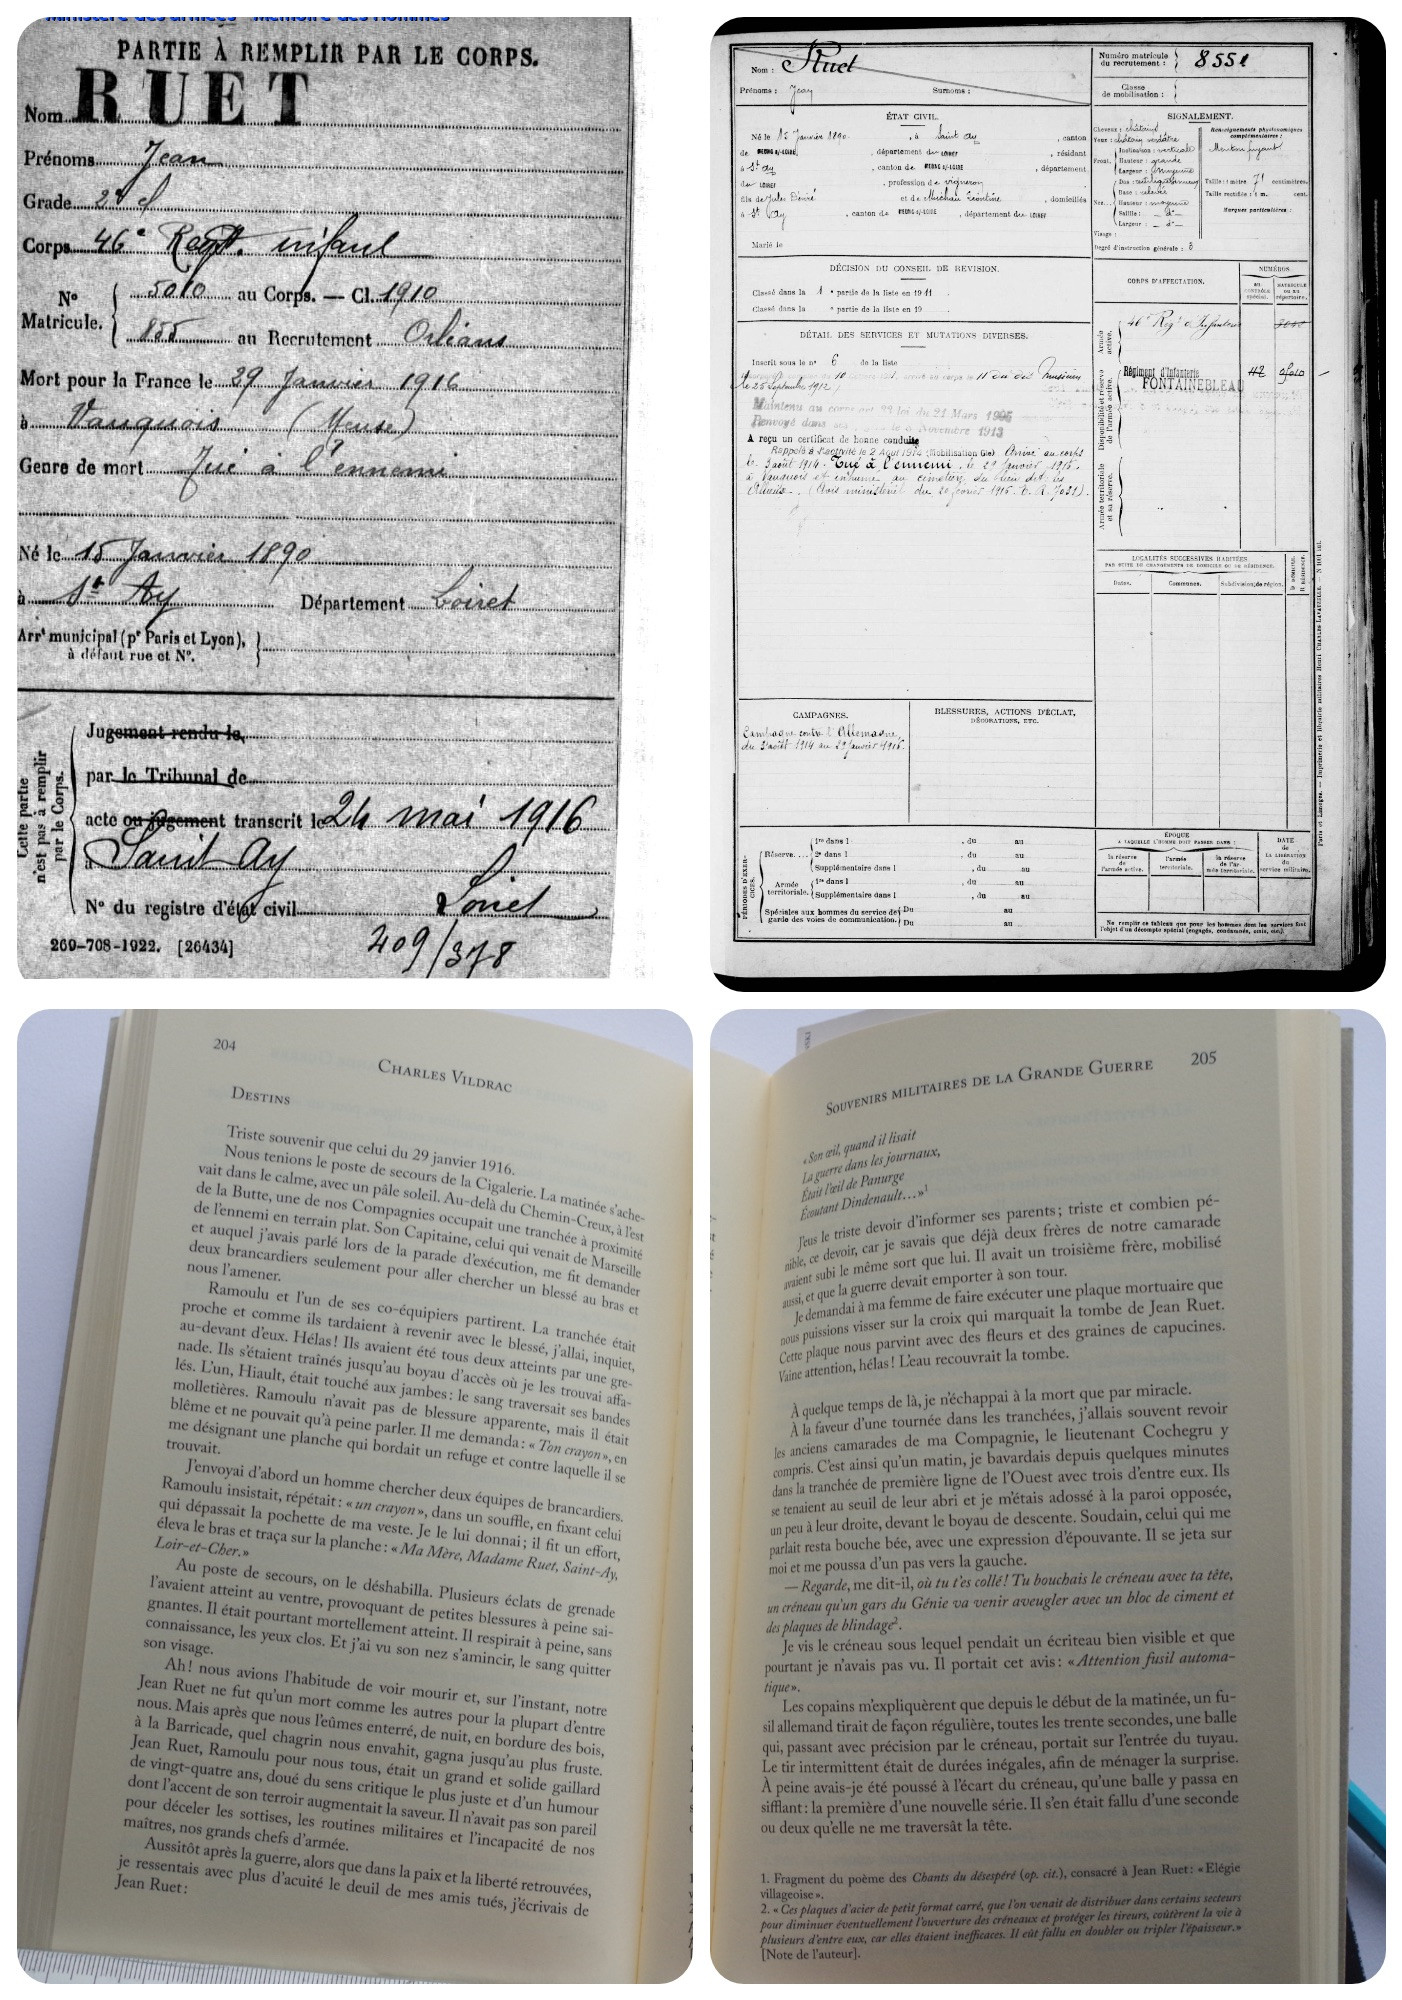 PARTIE À REMPLIR PAR LE CORPS.
Nom RUET
Prénoms Jean
Grade 2e cl
Corps 46e Regt. infant
N° Maticule. 5010 au Corps. — Cl. 1910
855 au Recrutement Orléans
Mort pour la France le 29 Janvier 1916
à Vauquois (Meuse)
Genre de mort Tué à l'ennemi
Né le 15 Janvier 1890
à St Ay Département Loiret
Arrt municipal (pr Paris et Lyon),
à défaut rue et N°.
Cette partie n'est pas à remplir par le Corps.
Jugement rendu le
par le Tribunal de
acte ou jugement transcrit le 24 mai 1916
à Saint Ay
Loiret
N° du registre d'état civil
269-708-1922. [26434]
409/378
Nom : Ruet
Prénoms : Jean Surnoms :
Numéro matricule du recrutement : 855
Classe de mobilisation :
ÉTAT CIVIL.
Né le 15 Janvier 1890, à Saint Ay, canton
de MEUNG s/-LOIRE, département du LOIRET, résidant
à St Ay, canton de MEUNG s/-LOIRE, département
du LOIRET, profession de vigneron
fils de Jules Désiré et de domiciliés
à St Ay, canton de MEUNG s/-LOIRE, département du LOIRET
Marié le
SIGNALEMENT.
Cheveux : châtains
Yeux :
Front. Inclinaison : verticale
Hauteur : grande
Largeur : moyenne
Nez. Dos :
Base : relevée
Hauteur : moyenne
Saillie : — d° —
Largeur : — d° —
Visage :
Renseignements physionomiques complémentaires :
Menton fuyant
Taille : 1 mètre 71 centimètres.
Taille rectifiée : 1 m. cent.
Marques particulières :
Degré d'instruction générale : 3
DÉCISION DU CONSEIL DE REVISION.
Classé dans la 1 e partie de la liste en 1911
Classé dans la e partie de la liste en 19
DÉTAIL DES SERVICES ET MUTATIONS DIVERSES.
Inscrit sous le n° 6 de la liste
le 25 Septembre 1912
Maintenu au corps loi du 21 Mars 1905
Renvoyé dans ses le 8 Novembre 1913
A reçu un certificat de bonne conduite
Rappelé à l'activité le 2 Août 1914 (Mobilisation Gle) Arrivé au corps
le 3 août 1914. Tué à l'ennemi le 29 Janvier 1916.
à Vauquois et inhumé au cimetière du lieu dit : les
(Avis ministériel du 20 février 1916
CORPS D'AFFECTATION.
NUMÉROS.
AU CONTRÔLE SPÉCIAL.
MATRICULE OU AU RÉPERTOIRE.
Armée active.
46e Regt d'Infanterie
Disponibilité et réserve de l'armée active.
Régiment d'Infanterie
FONTAINEBLEAU
Armée territoriale et sa réserve.
LOCALITÉS SUCCESSIVES HABITÉES.
PAR SUITE DE CHANGEMENTS DE DOMICILE OU DE RÉSIDENCE.
Dates. Communes. Subdivision de région.
CAMPAGNES.
Campagne contre l'Allemagne,
du 3 août 1914 au 29 Janvier 1916.
BLESSURES, ACTIONS D'ÉCLAT,
DÉCORATIONS, ETC.
PÉRIODES D'EXERCICES.
Réserve.... 1re dans l , du au
2e dans l , du au
Supplémentaire dans l , du au
Armée territoriale. 1re dans l , du au
Supplémentaire dans l , du au
Spéciales aux hommes du service de garde des voies de communication. Du au
Du au
ÉPOQUE
A LAQUELLE L'HOMME DOIT PASSER DANS :
la réserve de l'armée active.
l'armée territoriale.
la réserve de l'armée territoriale.
DATE de LA LIBÉRATION du service militaire.
Ne remplir ce tableau que pour les hommes dont les services font
l'objet d'un décompte spécial (engagés, condamnés, omis, etc.).
Paris et Limoges. — Imprimerie et librairie militaires Henri CHARLES-LAVAUZELLE.
204
CHARLES VILDRAC
DESTINS
Triste souvenir que celui du 29 janvier 1916.
Nous tenions le poste de secours de la Cigalerie. La matinée s'ache-
vait dans le calme, avec un pâle soleil. Au-delà du Chemin-Creux, à l'est
de la Butte, une de nos Compagnies occupait une tranchée à proximité
de l'ennemi en terrain plat. Son Capitaine, celui qui venait de Marseille
et auquel j'avais parlé lors de la parade d'exécution, me fit demander
deux brancardiers seulement pour aller chercher un blessé au bras et
nous l'amener.
Ramoulu et l'un de ses co-équipiers partirent. La tranchée était
proche et comme ils tardaient à revenir avec le blessé, j'allai, inquiet,
au-devant d'eux. Hélas! Ils avaient été tous deux atteints par une gre-
nade. Ils s'étaient traînés jusqu'au boyau d'accès où je les trouvai affa-
lés. L'un, Hiault, était touché aux jambes : le sang traversait ses bandes
molletières. Ramoulu n'avait pas de blessure apparente, mais il était
blême et ne pouvait qu'à peine parler. Il me demanda : « Ton crayon », en
me désignant une planche qui bordait un refuge et contre laquelle il se
trouvait.
J'envoyai d'abord un homme chercher deux équipes de brancardiers.
Ramoulu insistait, répétait : « un crayon », dans un souffle, en fixant celui
qui dépassait la pochette de ma veste. Je le lui donnai ; il fit un effort,
éleva le bras et traça sur la planche : « Ma Mère, Madame Ruet, Saint-Ay,
Loir-et-Cher. »
Au poste de secours, on le déshabilla. Plusieurs éclats de grenade
l'avaient atteint au ventre, provoquant de petites blessures à peine sai-
gnantes. Il était pourtant mortellement atteint. Il respirait à peine, sans
connaissance, les yeux clos. Et j'ai vu son nez s'amincir, le sang quitter
son visage.
Ah! nous avions l'habitude de voir mourir et, sur l'instant, notre
Jean Ruet ne fut qu'un mort comme les autres pour la plupart d'entre
nous. Mais après que nous l'eûmes enterré, de nuit, en bordure des bois,
à la Barricade, quel chagrin nous envahit, gagna jusqu'au plus fruste.
Jean Ruet, Ramoulu pour nous tous, était un grand et solide gaillard
de vingt-quatre ans, doué du sens critique le plus juste et d'un humour
dont l'accent de son terroir augmentait la saveur. Il n'avait pas son pareil
pour déceler les sottises, les routines militaires et l'incapacité de nos
maîtres, nos grands chefs d'armée.
Aussitôt après la guerre, alors que dans la paix et la liberté retrouvées,
je ressentais avec plus d'acuité le deuil de mes amis tués, j'écrivais de
Jean Ruet :
SOUVENIRS MILITAIRES DE LA GRANDE GUERRE 205
« Son œil, quand il lisait
La guerre dans les journaux,
Était l'œil de Panurge
Écoutant Dindenault... »1
J'eus le triste devoir d'informer ses parents ; triste et combien pé-
nible, ce devoir, car je savais que déjà deux frères de notre camarade
avaient subi le même sort que lui. Il avait un troisième frère, mobilisé
aussi, et que la guerre devait emporter à son tour.
Je demandai à ma femme de faire exécuter une plaque mortuaire que
nous puissions visser sur la croix qui marquait la tombe de Jean Ruet.
Cette plaque nous parvint avec des fleurs et des graines de capucines.
Vaine attention, hélas! L'eau recouvrait la tombe.
À quelque temps de là, je n'échappai à la mort que par miracle.
À la faveur d'une tournée dans les tranchées, j'allais souvent revoir
les anciens camarades de ma Compagnie, le lieutenant Cochegru y
compris. C'est ainsi qu'un matin, je bavardais depuis quelques minutes
dans la tranchée de première ligne de l'Ouest avec trois d'entre eux. Ils
se tenaient au seuil de leur abri et je m'étais adossé à la paroi opposée,
un peu à leur droite, devant le boyau de descente. Soudain, celui qui me
parlait resta bouche bée, avec une expression d'épouvante. Il se jeta sur
moi et me poussa d'un pas vers la gauche.
— Regarde, me dit-il, où tu t'es collé! Tu bouchais le créneau avec ta tête,
un créneau qu'un gars du Génie va venir aveugler avec un bloc de ciment et
des plaques de blindage2.
Je vis le créneau sous lequel pendait un écriteau bien visible et que
pourtant je n'avais pas vu. Il portait cet avis : « Attention fusil automa-
tique ».
Les copains m'expliquèrent que depuis le début de la matinée, un fu-
sil allemand tirait de façon régulière, toutes les trente secondes, une balle
qui, passant avec précision par le créneau, portait sur l'entrée du tuyau.
Le tir intermittent était de durées inégales, afin de ménager la surprise.
À peine avais-je été poussé à l'écart du créneau, qu'une balle y passa en
sifflant : la première d'une nouvelle série. Il s'en était fallu d'une seconde
ou deux qu'elle ne me traversât la tête.
1. Fragment du poème des Chants du désespéré (op. cit.), consacré à Jean Ruet : « Elégie
villageoise ».
2. « Ces plaques d'acier de petit format carré, que l'on venait de distribuer dans certains secteurs
pour diminuer éventuellement l'ouverture des créneaux et protéger les tireurs, coûtèrent la vie à
plusieurs d'entre eux, car elles étaient inefficaces. Il eût fallu en doubler ou tripler l'épaisseur. »
[Note de l'auteur].